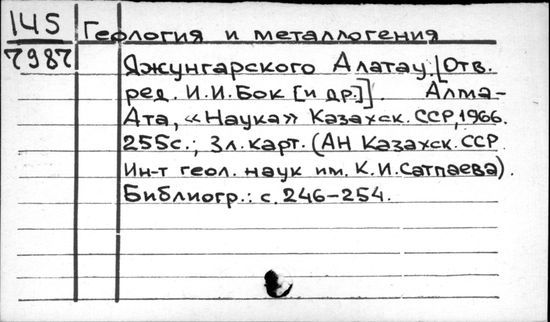 145 Геология и металлогения
7987 Джунгарского Алатау. [Отв.
ред. И.И.Бок [и др.]]. Алма-
Ата, «Наука» Казахск. ССР, 1966.
255с.; 3л. карт. (АН Казахск. ССР
Ин-т геол. наук им. К.И.Сатпаева).
Библиогр.: с. 246-254.